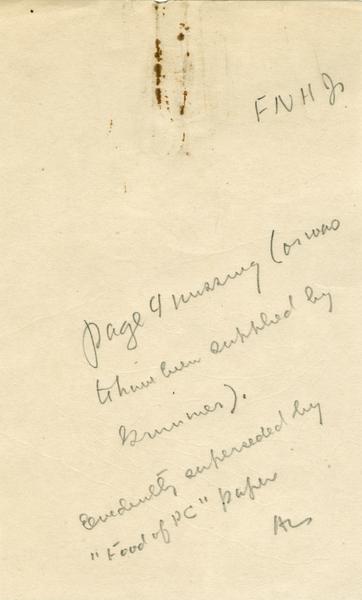 FNH Jr
page 4 missing (or was
to have been supplied by
Grinnell).
Evidently superseded by
"Food of PC" paper